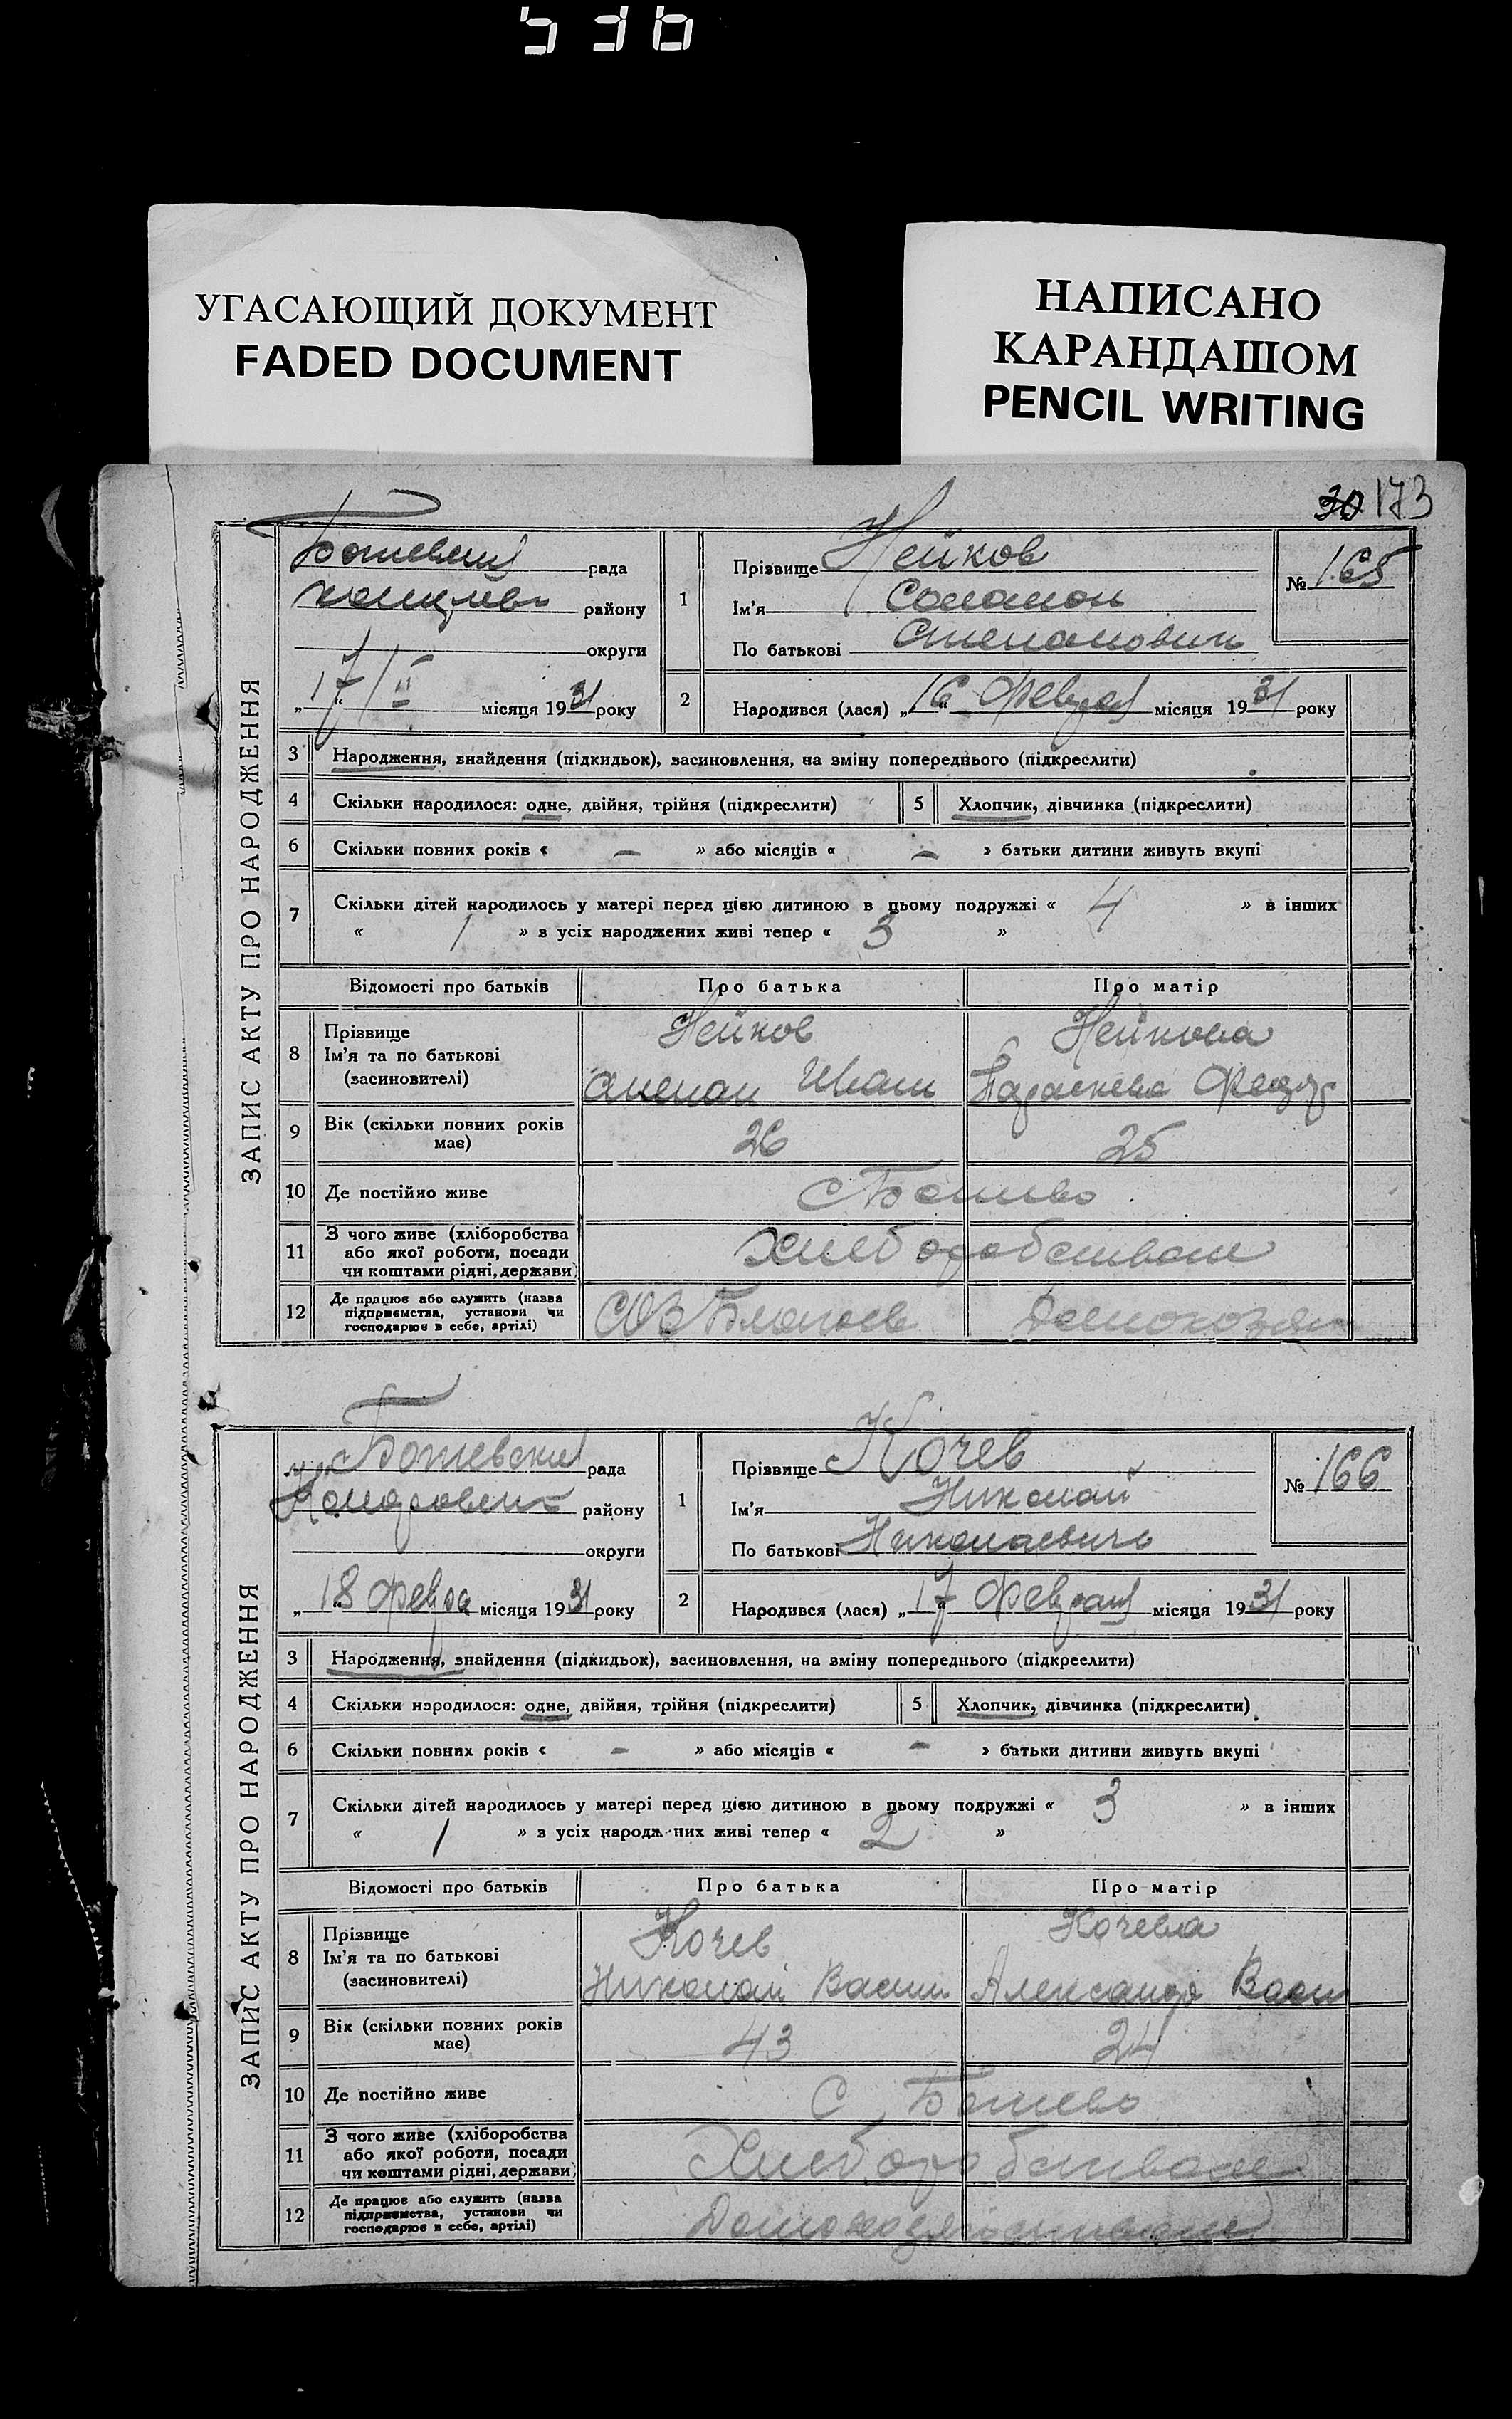 536
УГАСАЮЩИЙ ДОКУМЕНТ
FADED DOCUMENT
НАПИСАНО
КАРАНДАШОМ
PENCIL WRITING
30 173
ЗАПИС АКТУ ПРО НАРОДЖЕННЯ
рада
району
округи
„17/II“ місяця 1931 року
1
Прізвище Нейков
Ім'я Соломон
По батькові Степанович
№ 165
2
Народився (лася) „16“ февраля місяця 1931 року
3 Народження, знайдення (підкидьок), засиновлення, на зміну попереднього (підкреслити)
4 Скільки народилося: одне, двійня, трійня (підкреслити) 5 Хлопчик, дівчинка (підкреслити)
6 Скільки повних років « — » або місяців « — » батьки дитини живуть вкупі
7 Скільки дітей народилось у матері перед цією дитиною в цьому подружжі « 4 » в інших
« 1 » з усіх народжених живі тепер « 3 »
Відомості про батьків Про батька Про матір
8 Прізвище
Ім'я та по батькові
(засиновителі)
Нейков
Степан Иван
Нейкова
Параскева Федор
9 Вік (скільки повних років
має)
26 25
10 Де постійно живе С Ботиево
11 З чого живе (хліборобства
або якої роботи, посади
чи коштами рідні, держави)
12 Де працює або служить (назва
підприємства, установи чи
господарює в себе, артілі)
ЗАПИС АКТУ ПРО НАРОДЖЕННЯ
Ботиевская рада
району
округи
„18“ февра местами місяця 1931 року
1
Прізвище Кочев
Ім'я Николай
По батькові Николаевичь
№ 166
2
Народився (лася) „17“ февраля місяця 1931 року
3 Народження, знайдення (підкидьок), засиновлення, на зміну попереднього (підкреслити)
4 Скільки народилося: одне, двійня, трійня (підкреслити) 5 Хлопчик, дівчинка (підкреслити)
6 Скільки повних років « — » або місяців « — » батьки дитини живуть вкупі
7 Скільки дітей народилось у матері перед цією дитиною в цьому подружжі « 3 » в інших
« 1 » з усіх народжених живі тепер « 2 »
Відомості про батьків Про батька Про матір
8 Прізвище
Ім'я та по батькові
(засиновителі)
Кочев
Николай Васил
Кочева
Александр Васи
9 Вік (скільки повних років
має)
43 24
10 Де постійно живе С Ботиево
11 З чого живе (хліборобства
або якої роботи, посади
чи коштами рідні, держави)
12 Де працює або служить (назва
підприємства, установи чи
господарює в себе, артілі)